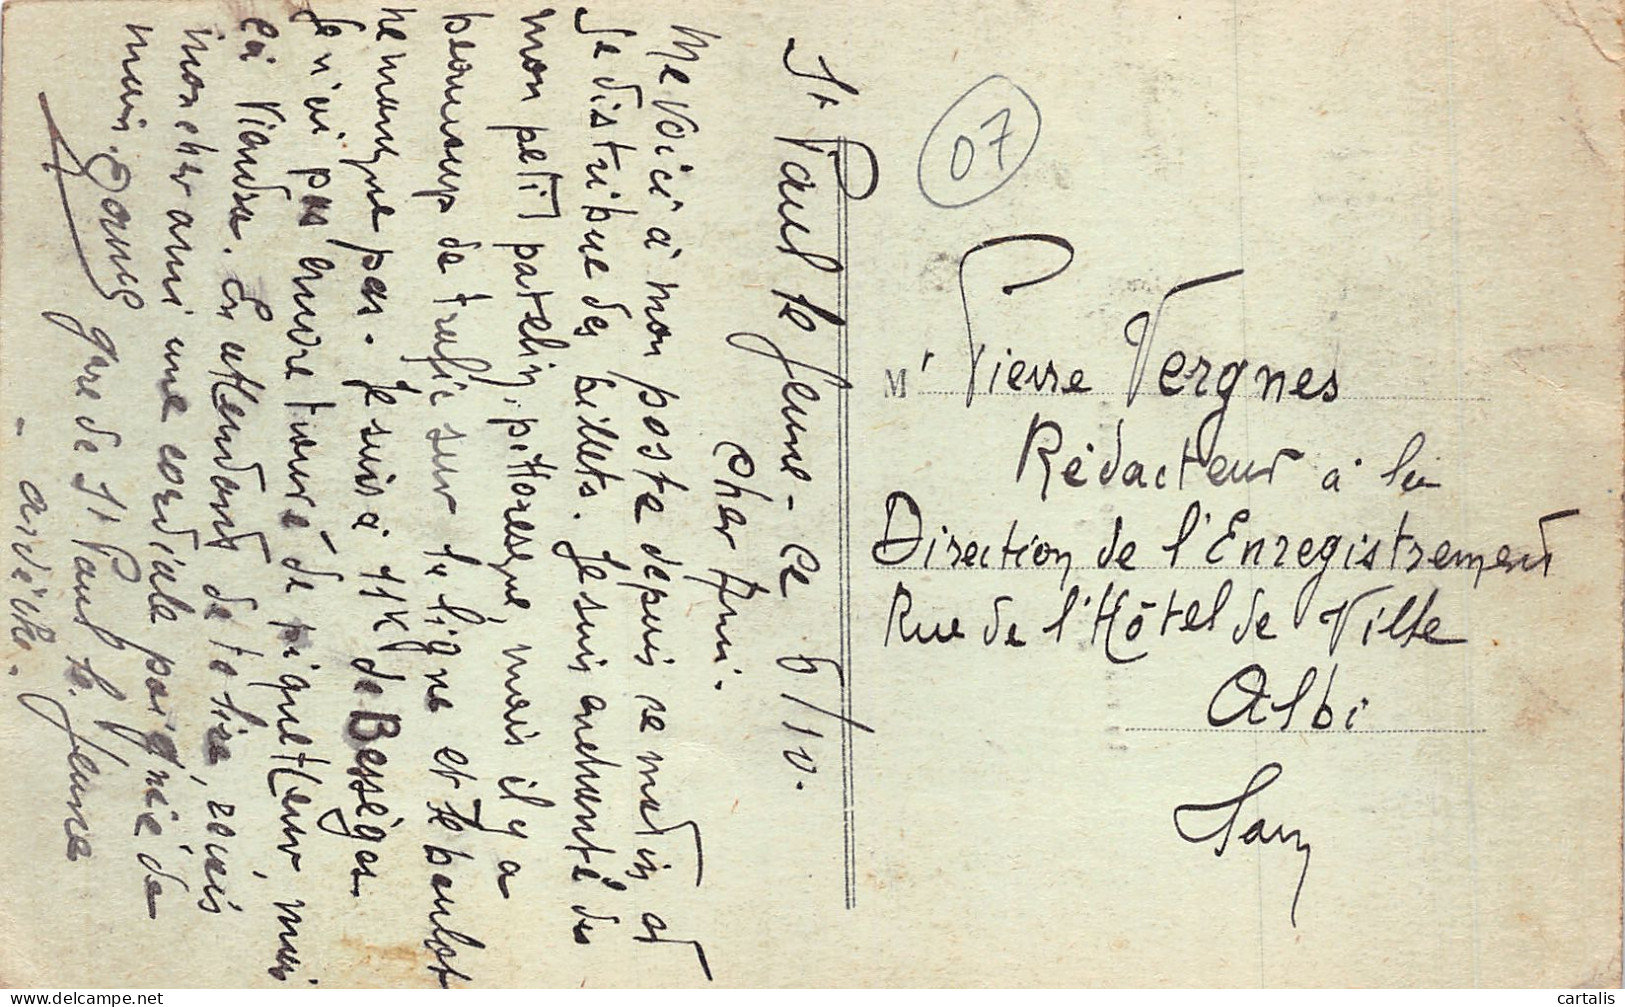 St Paul le Jeune - Ce 6/10.
Cher Ami.
Me voici à mon poste depuis ce matin et
Je distribue des billets. Je suis enchanté de
mon petit patelin, pittoresque, mais il y a
beaucoup de trafic sur la ligne et le boulot
ne manque pas. Je suis à 11K de Bessèges.
Je n'ai pas encore trouvé de piquetteur, mais
ça viendra. En attendant de te lire, reçois
mon cher ami une cordiale poignée de
main.
gare de St Paul le Jeune
- ardèche -
07
Mr Pierre Vergnes
Rédacteur à la
Direction de l'Enregistrement
Rue de l'Hôtel de Ville
Albi
Tarn
www.delcampe.net
cartalis